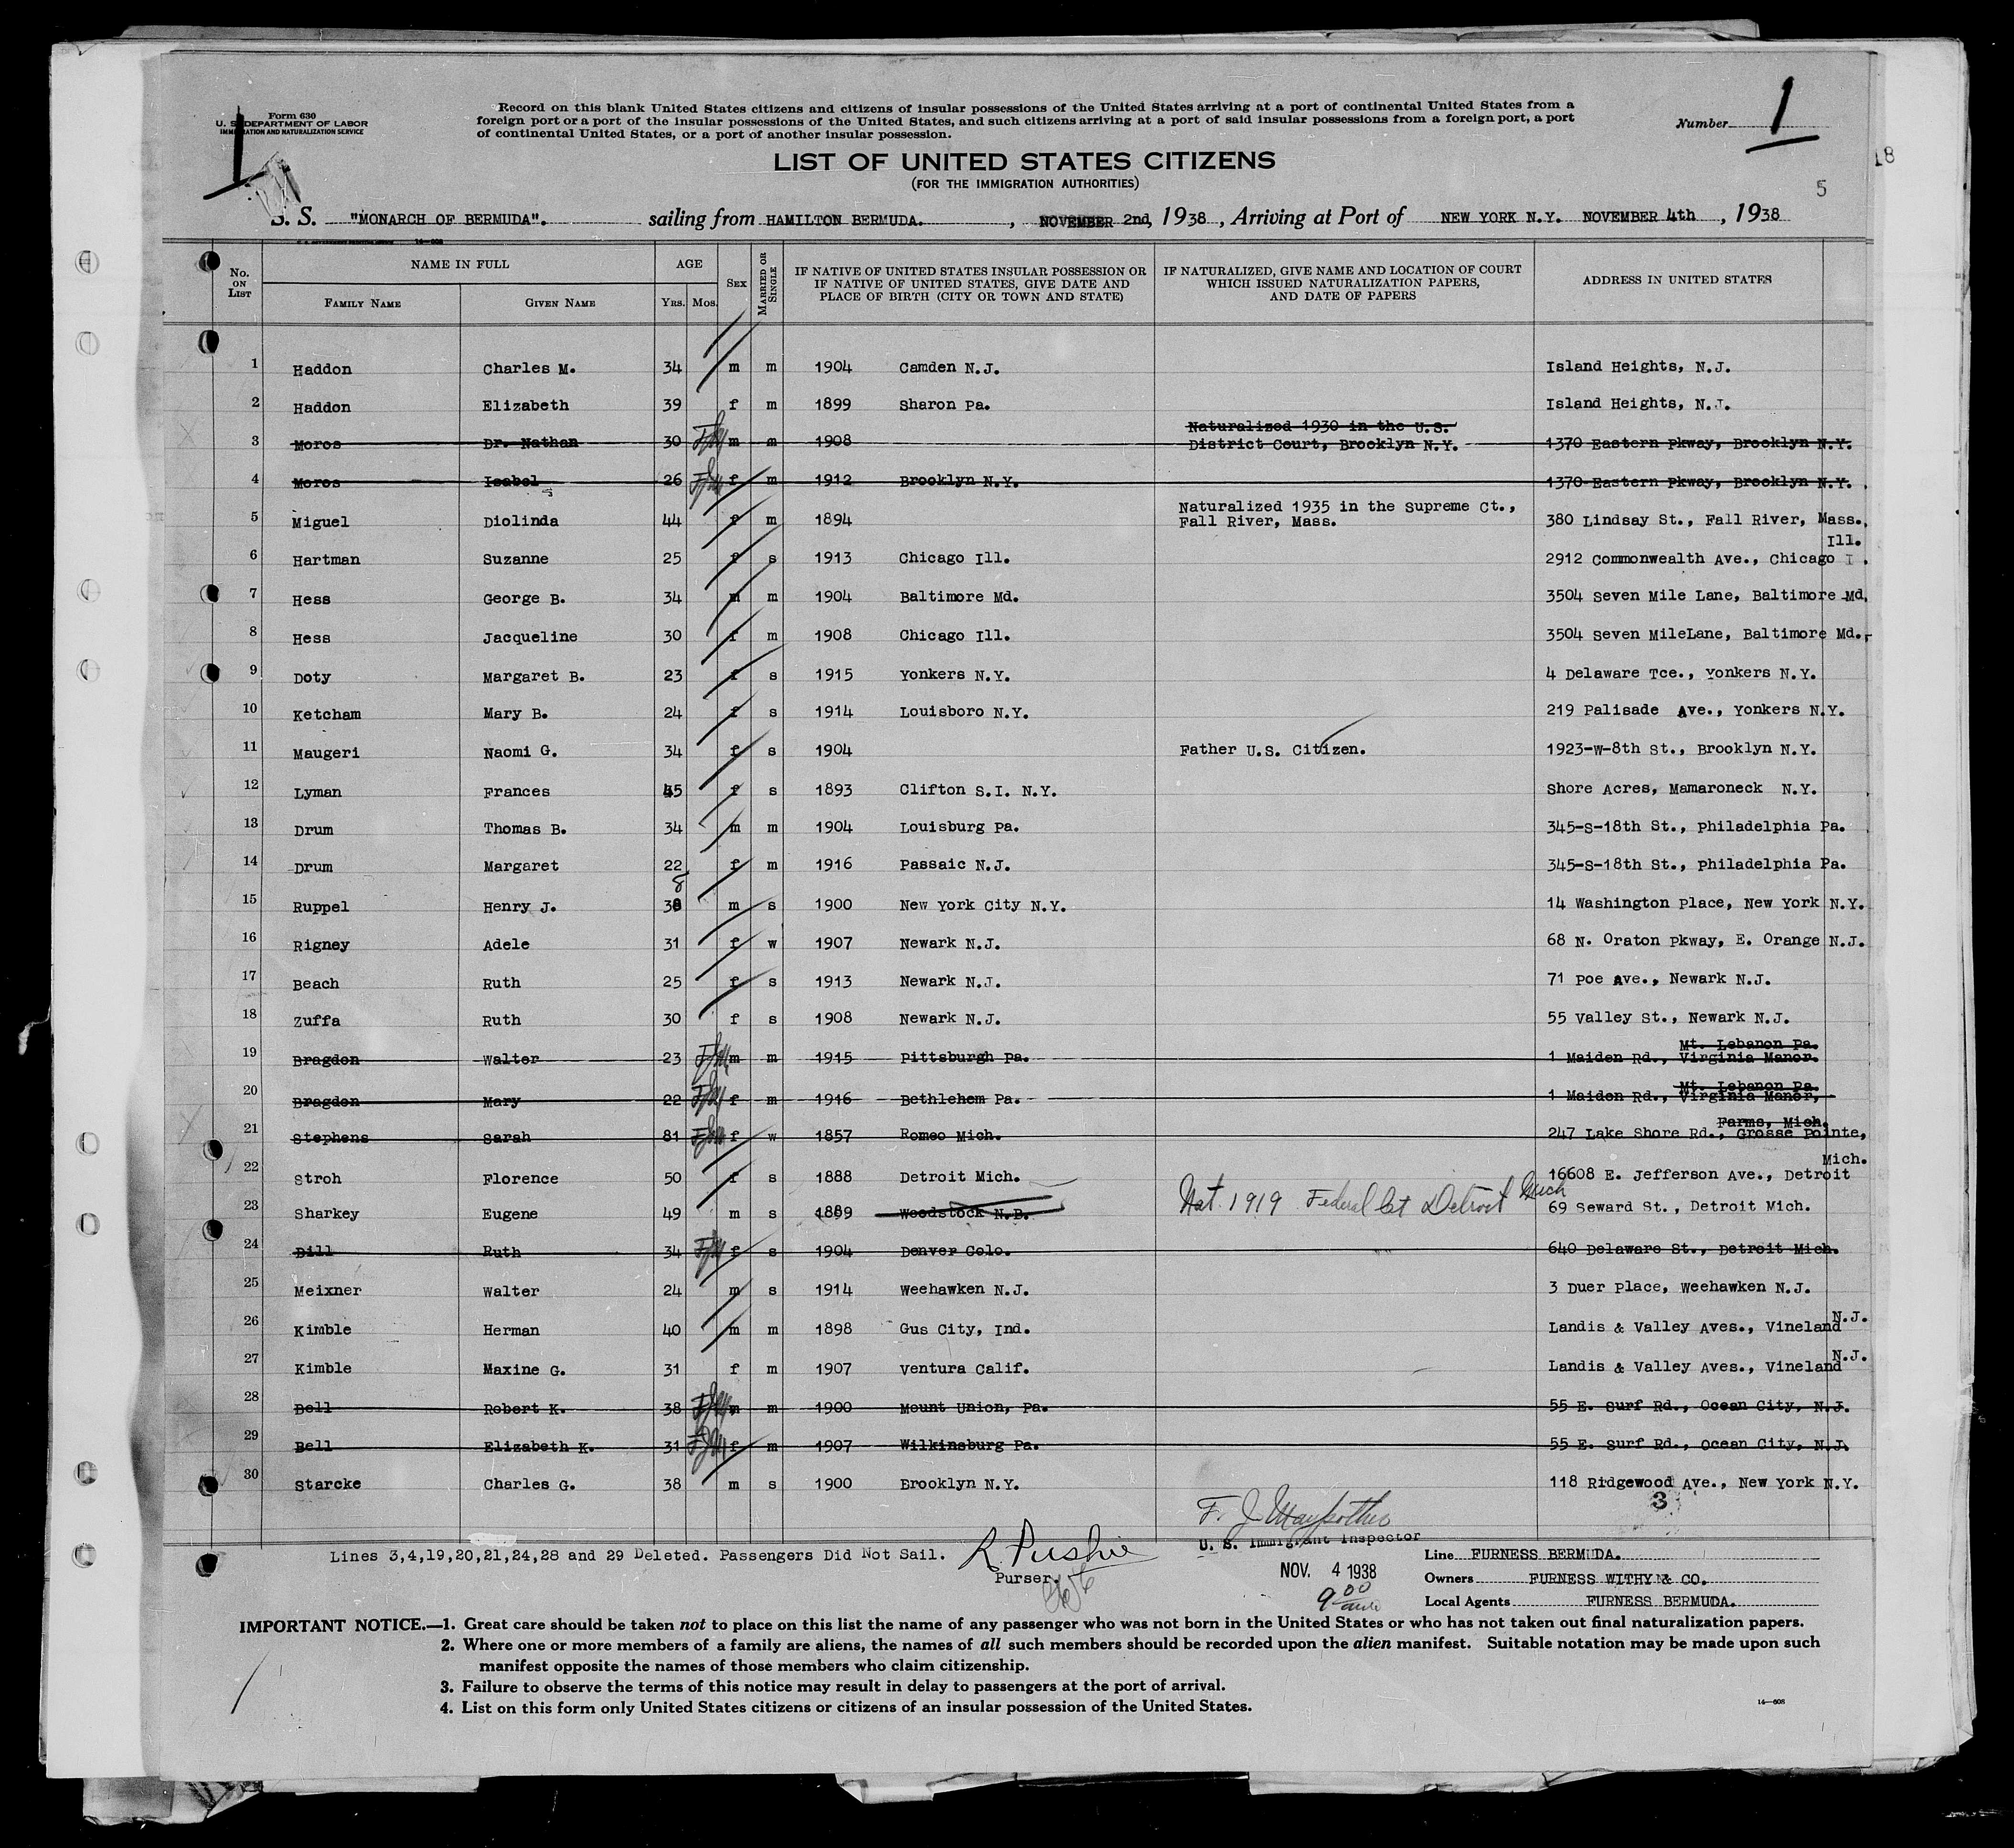 Form 630
U. S. DEPARTMENT OF LABOR
IMMIGRATION AND NATURALIZATION SERVICE
1
Record on this blank United States citizens and citizens of insular possessions of the United States arriving at a port of continental United States from a
foreign port or a port of the insular possessions of the United States, and such citizens arriving at a port of said insular possessions from a foreign port, a port
of continental United States, or a port of another insular possession.
Number 1
LIST OF UNITED STATES CITIZENS
(FOR THE IMMIGRATION AUTHORITIES)
18
5
S. S. "MONARCH OF BERMUDA". sailing from HAMILTON BERMUDA. , NOVEMBER 2nd, 1938, Arriving at Port of NEW YORK N.Y. NOVEMBER 4th , 1938
No. ON LIST
NAME IN FULL
FAMILY NAME
GIVEN NAME
AGE
YRS.
MOS.
SEX
MARRIED OR SINGLE
IF NATIVE OF UNITED STATES INSULAR POSSESSION OR
IF NATIVE OF UNITED STATES, GIVE DATE AND
PLACE OF BIRTH (CITY OR TOWN AND STATE)
IF NATURALIZED, GIVE NAME AND LOCATION OF COURT
WHICH ISSUED NATURALIZATION PAPERS,
AND DATE OF PAPERS
ADDRESS IN UNITED STATES
1 Haddon Charles M. 34 m m 1904 Camden N.J. Island Heights, N.J.
2 Haddon Elizabeth 39 f m 1899 Sharon Pa. Island Heights, N.J.
Naturalized 1930 in the U.S.
3 Moros Dr. Nathan 30 m m 1908 District Court, Brooklyn N.Y. 1370 Eastern Pkway, Brooklyn N.Y.
4 Moros Isabel 26 f m 1912 Brooklyn N.Y. 1370 Eastern Pkway, Brooklyn N.Y.
Naturalized 1935 in the Supreme Ct.,
5 Miguel Diolinda 44 f m 1894 Fall River, Mass. 380 Lindsay St., Fall River, Mass.,
Ill.
6 Hartman Suzanne 25 f s 1913 Chicago Ill. 2912 Commonwealth Ave., Chicago I .
7 Hess George B. 34 m m 1904 Baltimore Md. 3504 Seven Mile Lane, Baltimore Md.
8 Hess Jacqueline 30 f m 1908 Chicago Ill. 3504 Seven MileLane, Baltimore Md.,
9 Doty Margaret B. 23 f s 1915 Yonkers N.Y. 4 Delaware Tce., Yonkers N.Y.
10 Ketcham Mary B. 24 f s 1914 Louisboro N.Y. 219 Palisade Ave., Yonkers N.Y.
11 Maugeri Naomi G. 34 f s 1904 Father U.S. Citizen. 1923-W-8th St., Brooklyn N.Y.
12 Lyman Frances 45 f s 1893 Clifton S.I. N.Y. Shore Acres, Mamaroneck N.Y.
13 Drum Thomas B. 34 m m 1904 Louisburg Pa. 345-S-18th St., Philadelphia Pa.
14 Drum Margaret 22 f m 1916 Passaic N.J. 345-S-18th St., Philadelphia Pa.
8
15 Ruppel Henry J. 38 m s 1900 New York City N.Y. 14 Washington Place, New York N.Y.
16 Rigney Adele 31 f w 1907 Newark N.J. 68 N. Oraton Pkway, E. Orange N.J.
17 Beach Ruth 25 f s 1913 Newark N.J. 71 Poe Ave., Newark N.J.
18 Zuffa Ruth 30 f s 1908 Newark N.J. 55 Valley St., Newark N.J.
Mt. Lebanon Pa.
19 Bragdon Walter 23 m m 1915 Pittsburgh Pa. 1 Maiden Rd., Virginia Manor.
Mt. Lebanon Pa
20 Bragdon Mary 22 f m 1916 Bethlehem Pa. 1 Maiden Rd., Virginia Manor,
Farms, Mich.
21 Stephens Sarah 81 f w 1857 Romeo Mich. 247 Lake Shore Rd., Grosse Pointe,
Mich.
22 Stroh Florence 50 f s 1888 Detroit Mich. 16608 E. Jefferson Ave., Detroit
23 Sharkey Eugene 49 m s 1889 Woodstock N.B. Nat. 1919 Federal Ct Detroit Mich 69 Seward St., Detroit Mich.
24 Bill Ruth 34 f s 1904 Denver Colo. 640 Delaware St., Detroit Mich.
25 Meixner Walter 24 m s 1914 Weehawken N.J. 3 Duer Place, Weehawken N.J.
N.J.
26 Kimble Herman 40 m m 1898 Gus City, Ind. Landis & Valley Aves., Vineland
N.J.
27 Kimble Maxine G. 31 f m 1907 Ventura Calif. Landis & Valley Aves., Vineland
28 Bell Robert K. 38 m m 1900 Mount Union, Pa. 55 E. Surf Rd., Ocean City, N.J.
29 Bell Elizabeth K. 31 f m 1907 Wilkinsburg Pa. 55 E. Surf Rd., Ocean City, N.J.
30 Starcke Charles G. 38 m s 1900 Brooklyn N.Y. 118 Ridgewood Ave., New York N.Y.
3
U. S. Immigrant Inspector
Lines 3,4,19,20,21,24,28 and 29 Deleted. Passengers Did Not Sail.
Purser.
NOV. 4 1938
9 00 am
Line FURNESS BERMUDA.
Owners FURNESS WITHY & CO.
Local Agents FURNESS BERMUDA.
IMPORTANT NOTICE.—1. Great care should be taken not to place on this list the name of any passenger who was not born in the United States or who has not taken out final naturalization papers.
2. Where one or more members of a family are aliens, the names of all such members should be recorded upon the alien manifest. Suitable notation may be made upon such
manifest opposite the names of those members who claim citizenship.
3. Failure to observe the terms of this notice may result in delay to passengers at the port of arrival.
4. List on this form only United States citizens or citizens of an insular possession of the United States.
14—608